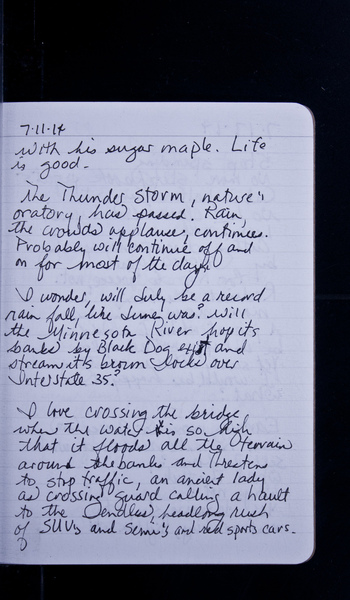 7-11-14
with his sugar maple. Life
is good.
The Thunder Storm, nature's
oratory, has passed. Rain,
the crowds applause, continues.
Probably will continue off and
on for most of the day.
I wonder, will July be a record
rain fall, like June was? Will
the Minnesota River hop its
banks by Black Dog exit and
stream its brown locks over
Interstate 35?
I love crossing the bridge
when the water is so high
that it floods all the terrain
around the banks and threatens
to stop traffic, an ancient lady
as crossing guard calling a hault
to the endless, headlong rush
of SUVs and semi's and red sports cars.